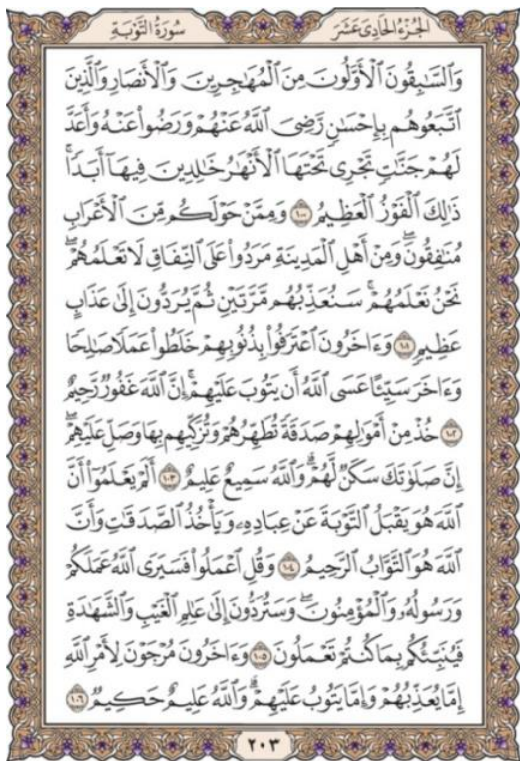 سُورَةُ التَّوْبَةِ
الجُزْءُ الحَادِى عَشَرَ
وَٱلسَّٰبِقُونَ ٱلْأَوَّلُونَ مِنَ ٱلْمُهَٰجِرِينَ وَٱلْأَنصَارِ وَٱلَّذِينَ
ٱتَّبَعُوهُم بِإِحْسَٰنٍ رَّضِىَ ٱللَّهُ عَنْهُمْ وَرَضُوا۟ عَنْهُ وَأَعَدَّ
لَهُمْ جَنَّٰتٍ تَجْرِى تَحْتَهَا ٱلْأَنْهَٰرُ خَٰلِدِينَ فِيهَآ أَبَدًا ۚ
ذَٰلِكَ ٱلْفَوْزُ ٱلْعَظِيمُ ١٠٠ وَمِمَّنْ حَوْلَكُم مِّنَ ٱلْأَعْرَابِ
مُنَٰفِقُونَ ۖ وَمِنْ أَهْلِ ٱلْمَدِينَةِ مَرَدُوا۟ عَلَى ٱلنِّفَاقِ لَا تَعْلَمُهُمْ ۖ
نَحْنُ نَعْلَمُهُمْ ۚ سَنُعَذِّبُهُم مَّرَّتَيْنِ ثُمَّ يُرَدُّونَ إِلَىٰ عَذَابٍ
عَظِيمٍ ١٠١ وَءَاخَرُونَ ٱعْتَرَفُوا۟ بِذُنُوبِهِمْ خَلَطُوا۟ عَمَلًا صَٰلِحًا
وَءَاخَرَ سَيِّئًا عَسَى ٱللَّهُ أَن يَتُوبَ عَلَيْهِمْ ۚ إِنَّ ٱللَّهَ غَفُورٌ رَّحِيمٌ
١٠٢ خُذْ مِنْ أَمْوَٰلِهِمْ صَدَقَةً تُطَهِّرُهُمْ وَتُزَكِّيهِم بِهَا وَصَلِّ عَلَيْهِمْ ۖ
إِنَّ صَلَوٰتَكَ سَكَنٌ لَّهُمْ ۗ وَٱللَّهُ سَمِيعٌ عَلِيمٌ ١٠٣ أَلَمْ يَعْلَمُوٓا۟ أَنَّ
ٱللَّهَ هُوَ يَقْبَلُ ٱلتَّوْبَةَ عَنْ عِبَادِهِۦ وَيَأْخُذُ ٱلصَّدَقَٰتِ وَأَنَّ
ٱللَّهَ هُوَ ٱلتَّوَّابُ ٱلرَّحِيمُ ١٠٤ وَقُلِ ٱعْمَلُوا۟ فَسَيَرَى ٱللَّهُ عَمَلَكُمْ
وَرَسُولُهُۥ وَٱلْمُؤْمِنُونَ ۖ وَسَتُرَدُّونَ إِلَىٰ عَٰلِمِ ٱلْغَيْبِ وَٱلشَّهَٰدَةِ
فَيُنَبِّئُكُم بِمَا كُنتُمْ تَعْمَلُونَ ١٠٥ وَءَاخَرُونَ مُرْجَوْنَ لِأَمْرِ ٱللَّهِ
إِمَّا يُعَذِّبُهُمْ وَإِمَّا يَتُوبُ عَلَيْهِمْ ۗ وَٱللَّهُ عَلِيمٌ حَكِيمٌ ١٠٦
٢٠٣